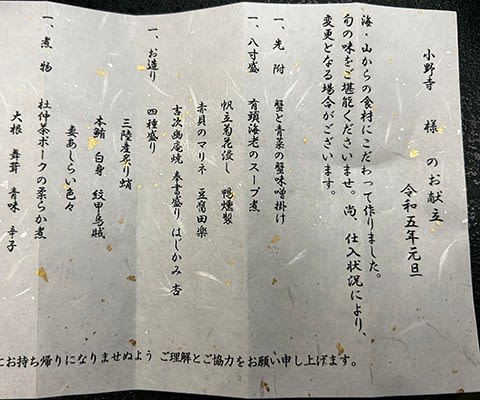 小野寺 様 のお献立
令和五年元旦
海・山からの食材にこだわって作りました。
旬の味をご堪能くださいませ。尚、仕入状況により、
変更となる場合がございます。
一、先附 蟹と青菜の蟹味噌掛け
一、八寸盛 有頭海老のスープ煮
帆立菊花浸し 鴨燻製
赤貝のマリネ 豆腐田楽
吉次幽庵焼 奉書盛り はじかみ 杏
一、お造り 四種盛り
三陸産炙り蛸
本鮪 白身 紋甲烏賊
妻あしらい色々
一、煮物 杜仲茶ポークの柔らか煮
大根 舞茸 青味 辛子
にお持ち帰りになりませぬよう ご理解とご協力をお願い申し上げます。